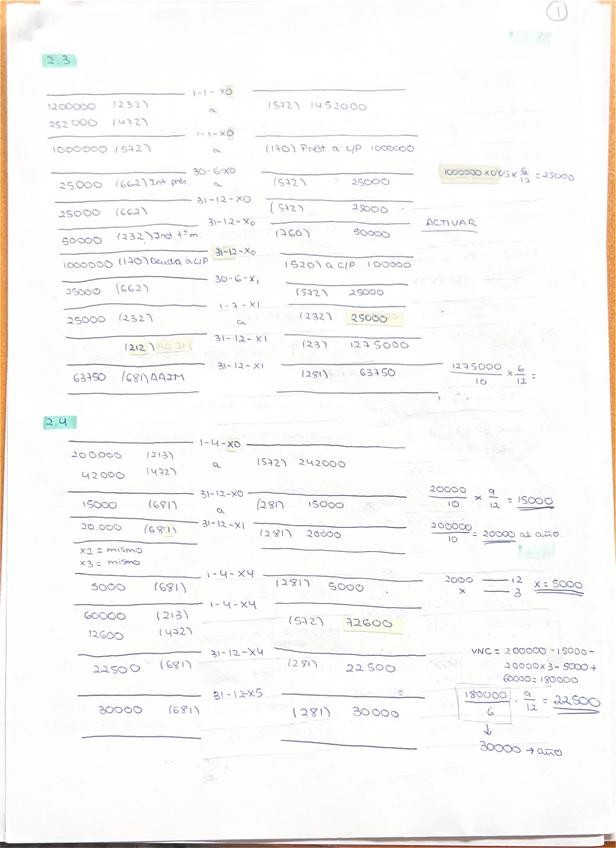 1
2.3
1-1-X0
1200000 (232) a (572) 1452000
252000 (472)
1-1-X0
1000000 (572) a (170) Prést a L/P 1000000
30-6-X0
25000 (662) Int prés. a (572) 25000
1000000 x 0'05 x 6/12 = 25000
31-12-X0
25000 (662) (572) 25000
31-12-X0
50000 (232) (760) 50000
ACTIVAR
31-12-X0
1000000 (170) Deuda a L/P (520) a C/P 100000
30-6-X1
25000 (662) (572) 25000
1-7-X1
25000 (232) a (232) 25000
31-12-X1
(212) (23) 1275000
31-12-X1
63750 (681) AAIM (281) 63750
1275000/10 x 6/12 =
2.4
1-4-X0
200.000 (213) a (572) 242000
42000 (472)
31-12-X0
15000 (681) a (281) 15000
20000/10 x 9/12 = 15000
31-12-X1
20.000 (681) (281) 20000
200000/10 = 20000 al año.
x2 = mismo
x3 = mismo
1-4-X4
5000 (681) (281) 5000
2000 — 12
x — 3 x = 5000
1-4-X4
60000 (213) (572) 72600
12600 (472)
31-12-X4
22500 (681) (281) 22500
VNC = 200000 - 15000 -
20000x3 - 5000 +
60000 = 180000
180000/6 · 9/12 = 22500
31-12-X5
30000 (681) (281) 30000
30000 → año